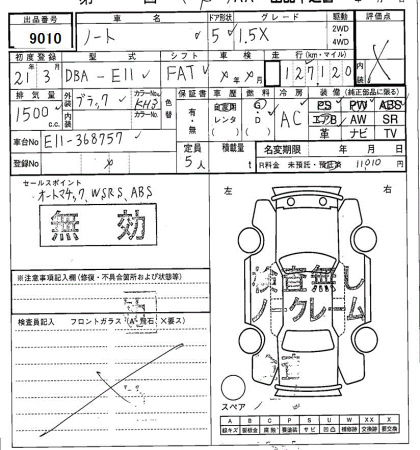 出品番号 車名 ドア形状 グレード 駆動 評価点
9010 ノート 5 1.5X 2WD 4WD X
初度登録 型式 シフト 車検 走行(km・マイル) 内装
21年3月 DBA-E11 FAT 127,120
排気量 外装 ブラック カラーNo. KH3 色替 保証書 車歴 燃料 冷房 装備(純正部品に限る)
1500 c.c. 有・無 自家用 レンタ G・D AC PS PW ABS
エアB AW SR
革 ナビ TV
車台No E11-368757
定員 積載量 名変期限 年 月 日
登録No 5人 t R料金 未預託・預託済 11010円
セールスポイント
オートマ4,7,WSRS,ABS
無効
左 右
※注意事項記入欄(修復・不具合箇所および状態等)
検査無し
ノークレーム
検査員記入 フロントガラス(A・飛石 X要ス)
スペア
A B C P S U W X XX
線キズ 要板金 腐蝕 要塗装 サビ 凹凸 補修跡 要交換